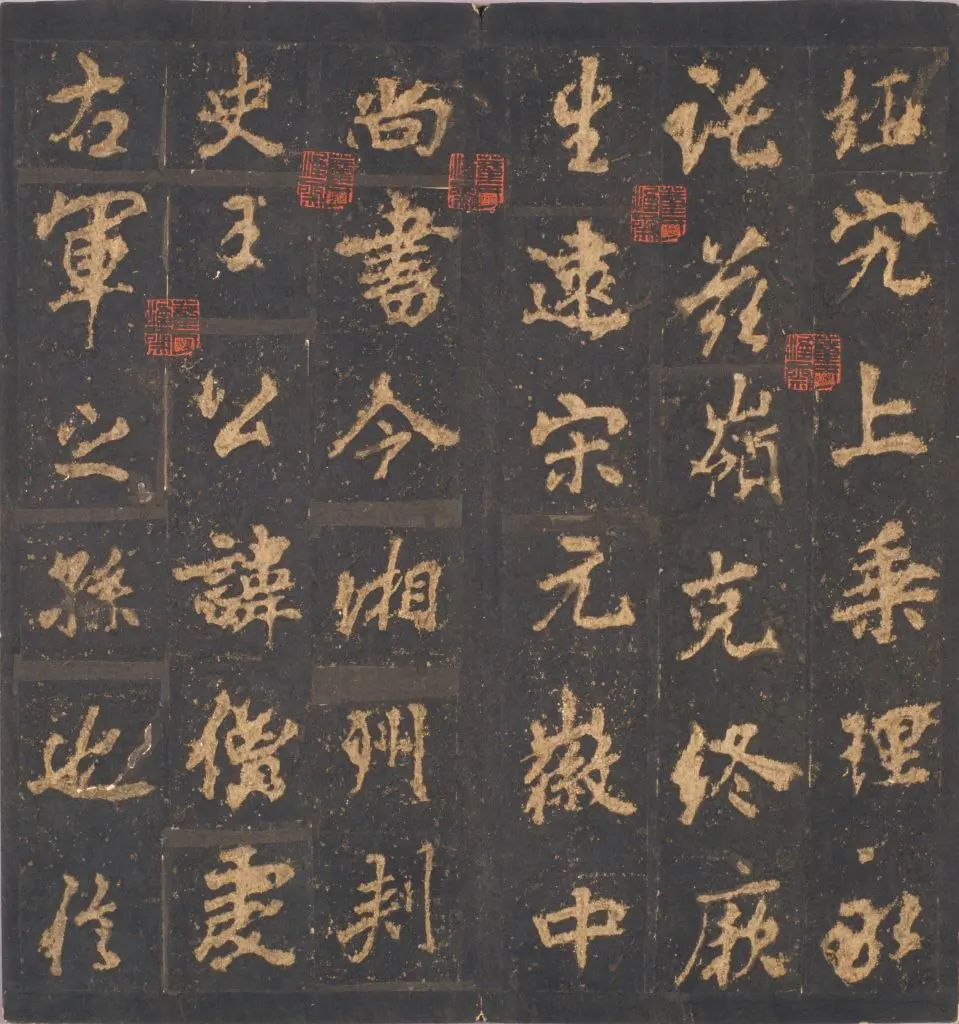 經究上乘理永
託茲嶺克終厥
生逮宋元徽中
尚書令湘州刺
史王公諱僧虔
右軍之孫也